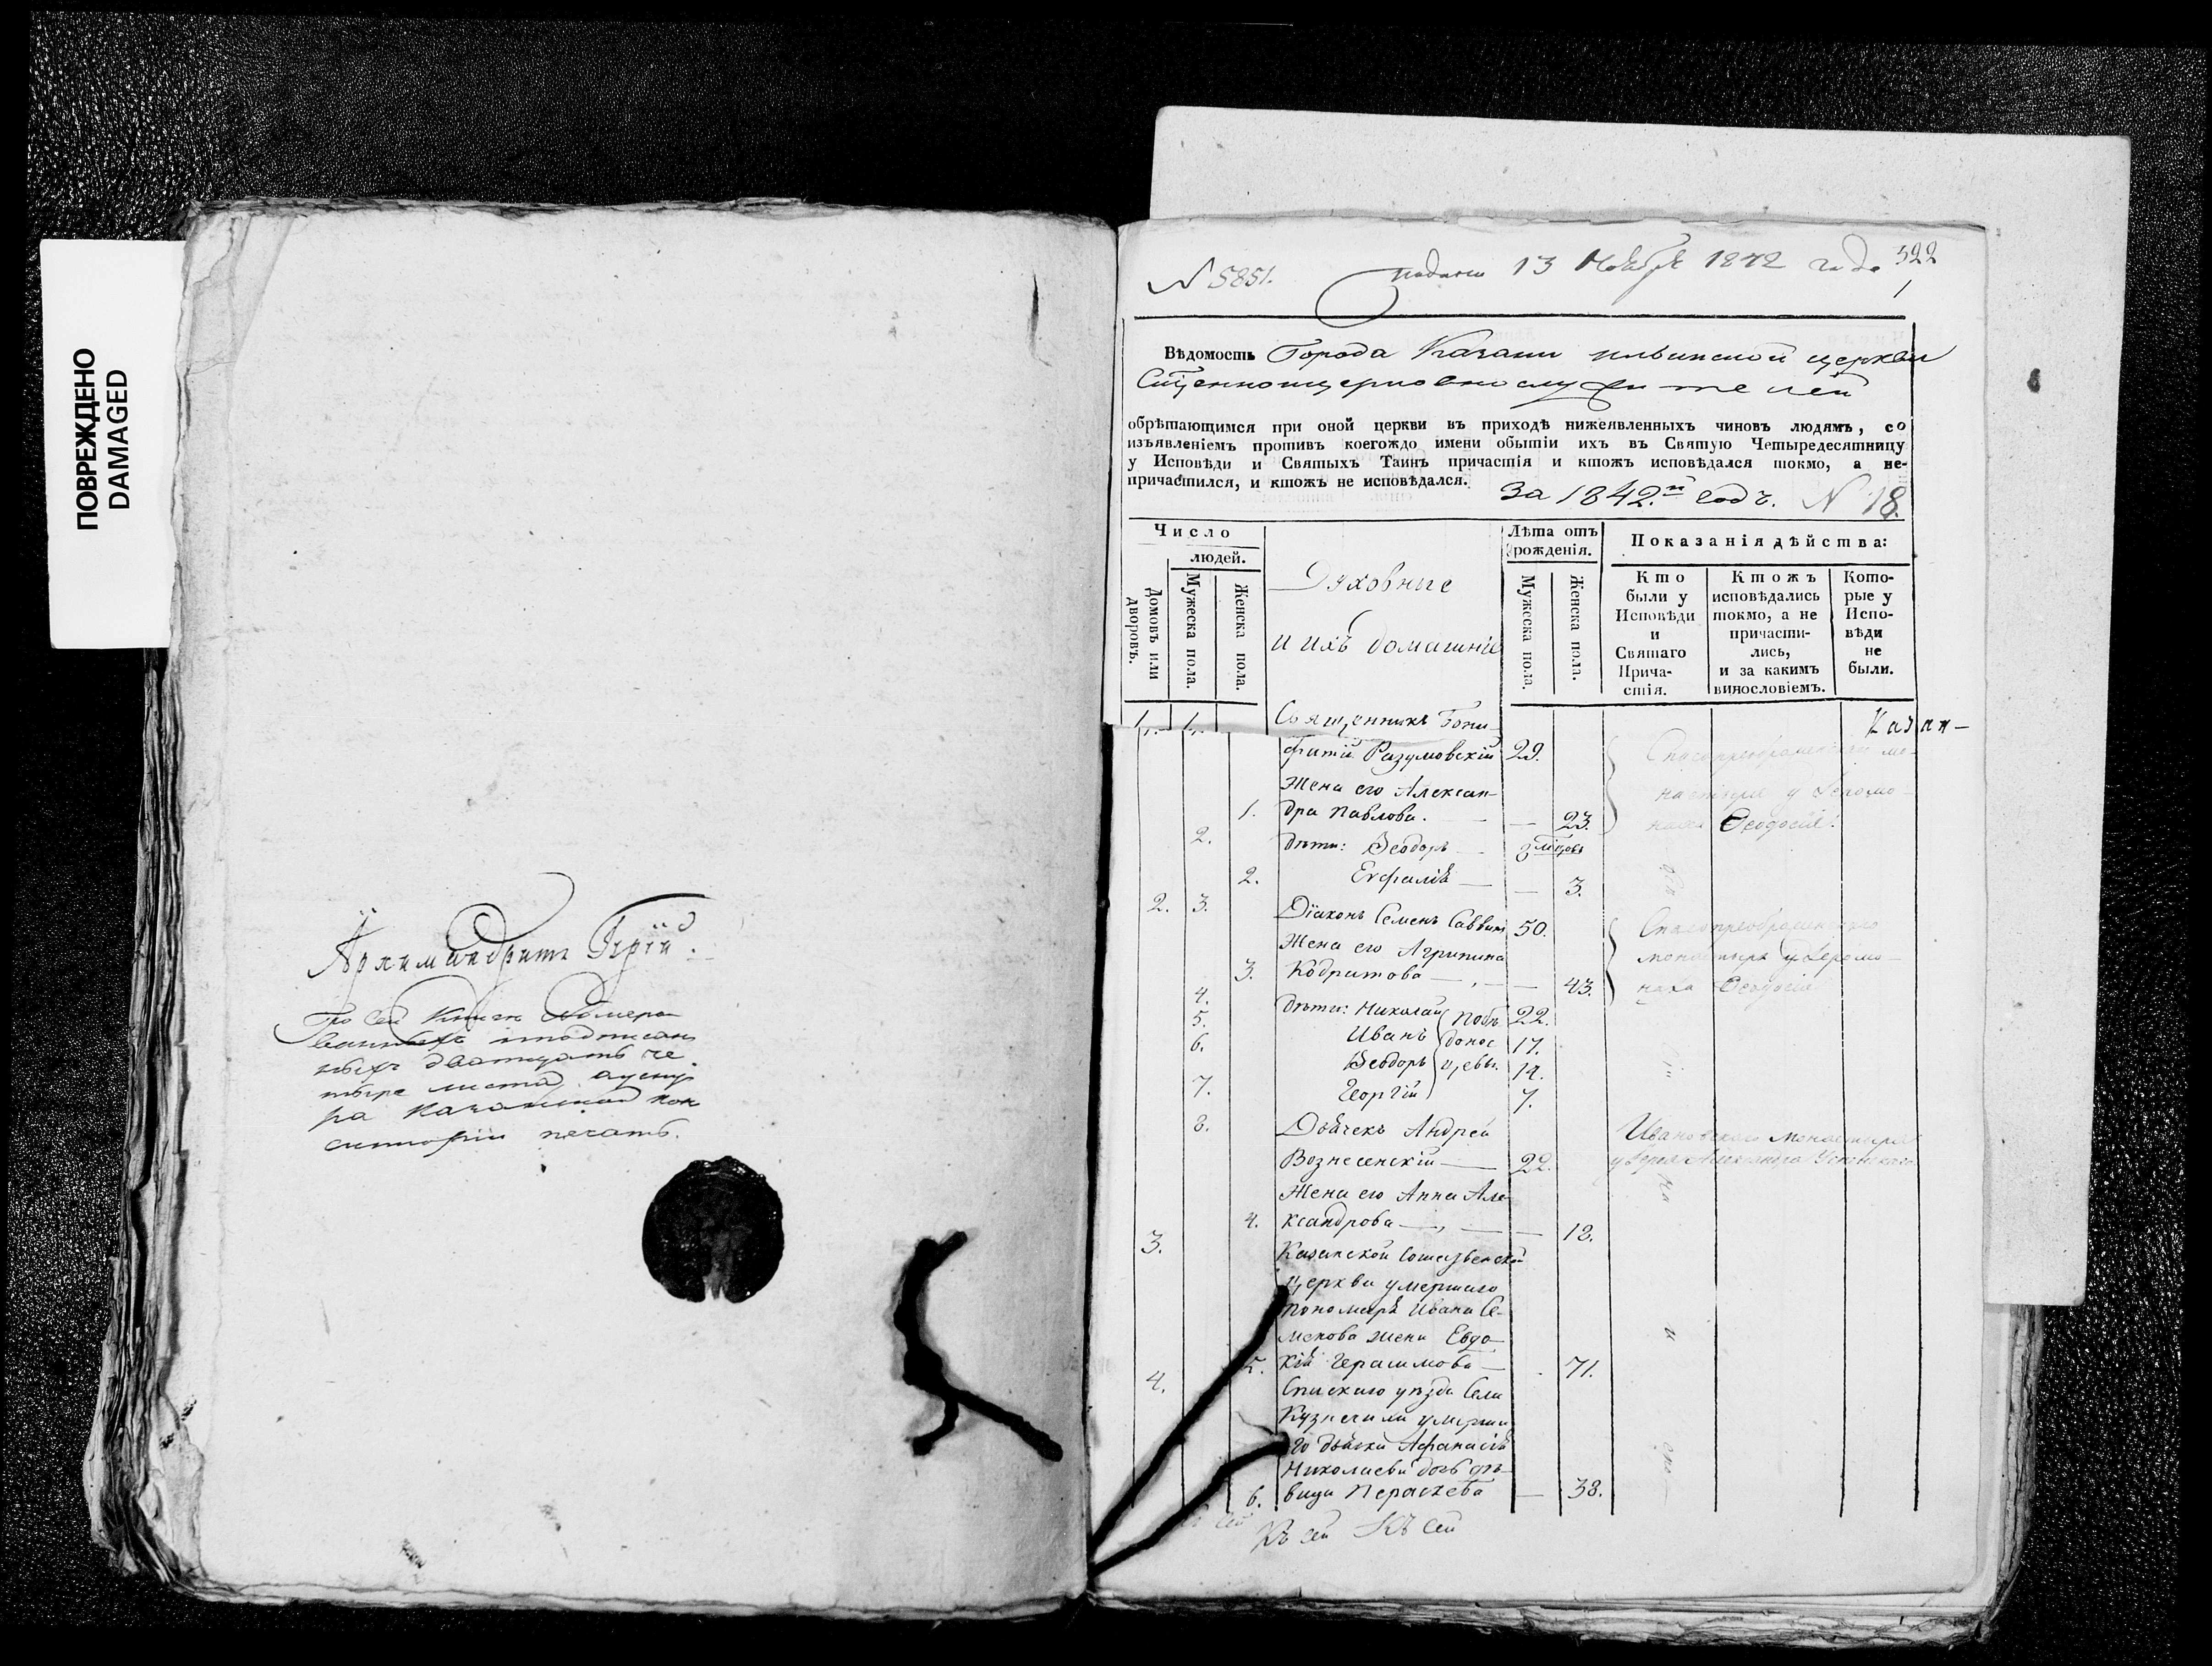 ПОВРЕЖДЕНО
DAMAGED
Архимандритъ Гурій.
по сей книге номеро
ванныхъ и подписан
ныхъ двадцать че
тыре листа, а у шну
ра Казанской кон
систоріи печать.
N 5851.
подана 13 Ноября 1842 года
322
Вѣдомость Города Казани ильинской церкви
Сщенноцерковнослужителей
обрѣтающимся при оной церкви въ приходѣ нижеявленныхъ чиновъ людямъ, со
изъявленіемъ противъ коегождо имени обытіи ихъ въ Святую Четыредесятницу
у Исповѣди и Святыхъ Таинъ причастія и ктожъ исповѣдался токмо, а не-
причастился, и ктожъ не исповѣдался.
За 1842.й годъ. N 18.
Число
людей.
Домовъ или дворовъ.
Мужеска пола.
Женска пола.
Духовные
и ихъ домашніе
Лѣта отъ
рожденія.
Мужеска пола.
Женска пола.
Показанія дѣйства:
Кто
были у
Исповѣди
и
Святаго
Прича-
стія.
Ктожъ
исповѣдались
токмо, а не
причасти-
лись,
и за какимъ
винословіемъ.
Кото-
рые у
Испо-
вѣди
не
были.
1. 1. Священникъ Бони-
Казан-
фатій Разумовскій 29. Спасопреображенскаго мо-
Жена его Алексан- настыря у Іеромо-
1. дра Павлова. — 23. наха Ѳеодосія.
2. дѣти: Ѳеодоръ — 8 мцовъ
2. Евфалія — — 3.
2. 3. Діаконъ Семенъ Саввинъ 50. Спасопреображенскаго
Жена его Агрипина монастыря у Іеромо-
3. Кодратова — — 43. наха Ѳеодосія
4. дѣти: Николай 22.
5. Иванъ 17.
6. Ѳеодоръ 14.
7. Георгій 7.
Побѣ
донос
цевы.
8. Дьячекъ Андрей Ивановскаго монастыря
Вознесенскій — 22. у Іерея Александра Успенскаго
Жена его Анна Але-
4. ксандрова — — 18.
3. Казанской Сошественской
церкви умершаго
пономаря Ивана Се-
менова жена Евдо-
5. кія Герасимова — 71.
4. Спаскаго уѣзда Села
Кузнечихи умерша
го дьячка Афанасія
Николаева дочь дѣ-
6. вица Параскева — 38.
Къ сей Къ сей